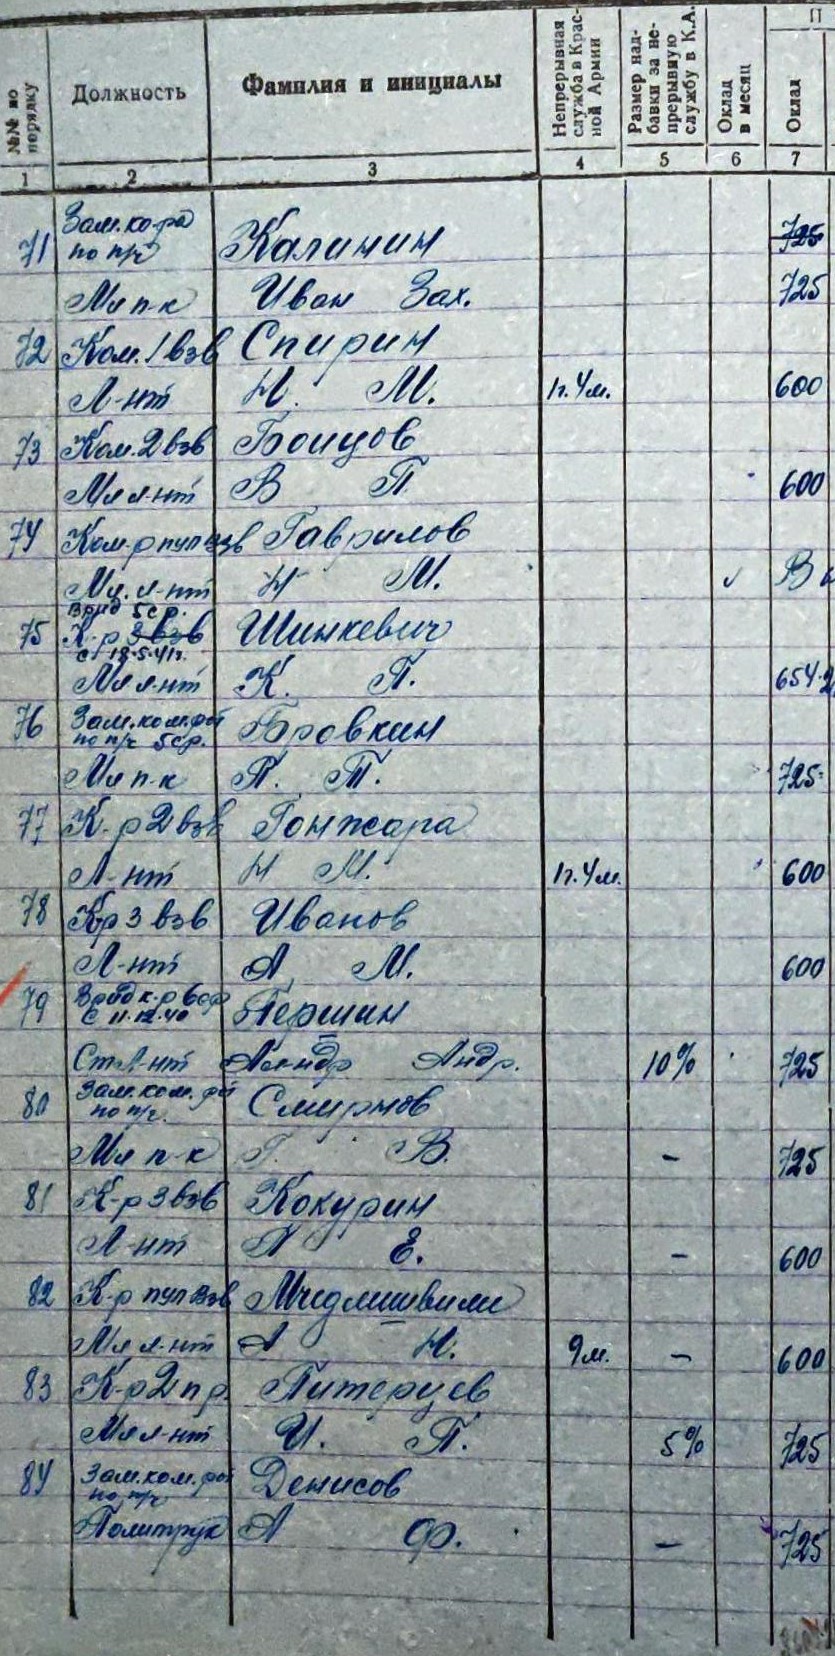 №№ по порядку
Должность
Фамилия и инициалы
Непрерывная служба в Красной Армии
Размер надбавки за непрерывную службу в К.А.
Оклад в месяц
Оклад
П
1 2 3 4 5 6 7
71 Зам. ко-ра по п/ч Калинин 725
Мл п-к Иван Зах. 725
72 Ком. 1 взв Спирин
Л-нт Н. М. 1г. 4м. 600
73 Ком. 2 взв Боицов
Мл л-нт В П 600
74 Ком-р пул взв Гаврилов
Мл. л-нт Н М. В
Врид 5ср.
75 К-р 3 взв Шинкевич
с 18.5.41г.
Мл л-нт К. П. 654
76 Зам. ком. роты по п/ч 5ср. Бровкин
Мл п-к П. Т. 725
77 К-р 2 взв Гонжара
Л-нт Н М. 1г. 4м. 600
78 К-р 3 взв Иванов
Л-нт А М. 600
79 Врид к-р 6ср Першин
с 11.12.40
Ст. л-нт Ал-ндр Андр. 10% 725
80 Зам. ком. роты по п/ч. Смирнов
Мл п-к Г. В. – 725
81 К-р 3 взв Кокурин
Л-нт П Е. – 600
82 К-р пул взв Мчедлишвили
Мл л-нт А Н. 9м. – 600
83 К-р 2 пр. Питерцев
Мл л-нт И. П. 5% 725
84 Зам. ком. роты по п/ч Денисов
Политрук А Ф. – 725